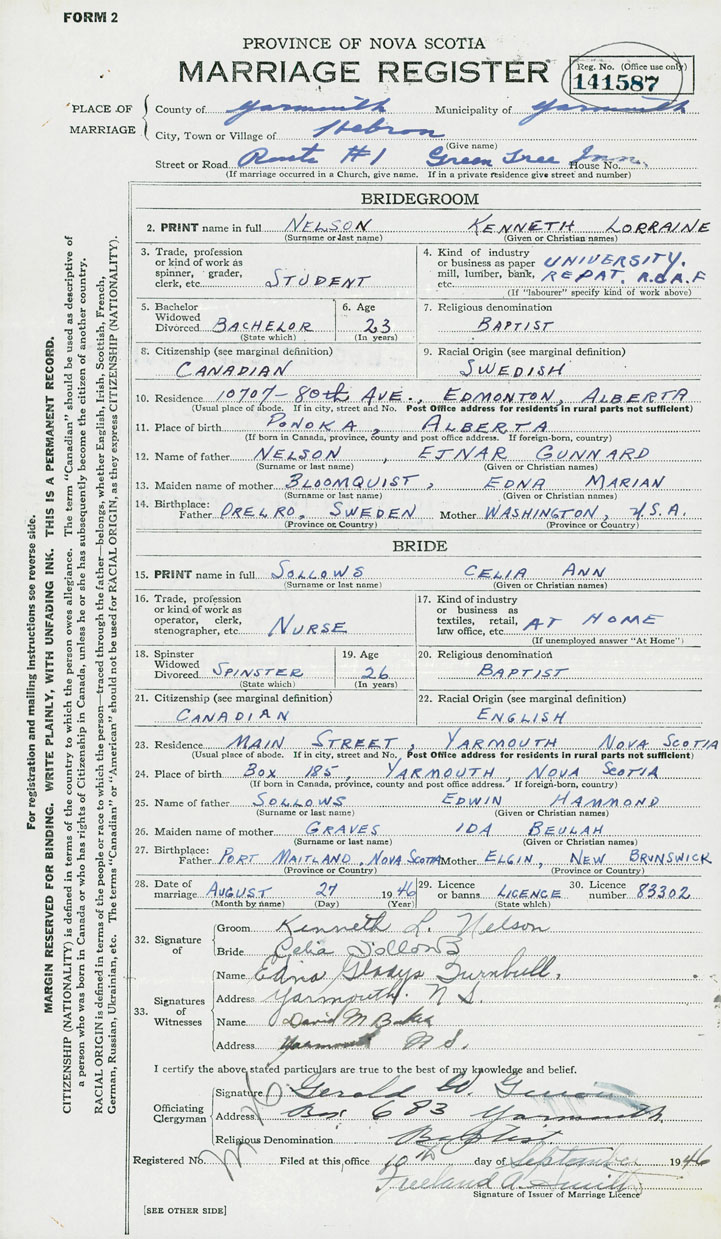 FORM 2
PROVINCE OF NOVA SCOTIA
MARRIAGE REGISTER
Reg. No. (Office use only)
141587
PLACE OF MARRIAGE
County of Yarmouth Municipality of Yarmouth
City, Town or Village of Hebron
(Give name)
Street or Road Route #1 Green Tree Inn House No.
(If marriage occurred in a Church, give name. If in a private residence give street and number)
BRIDEGROOM
2. PRINT name in full NELSON KENNETH LORRAINE
(Surname or last name) (Given or Christian names)
3. Trade, profession or kind of work as spinner, grader, clerk, etc. STUDENT
4. Kind of industry or business as paper mill, lumber, bank, etc. UNIVERSITY. REPAT. R.C.A.F
(If "labourer" specify kind of work above)
5. Bachelor Widowed Divorced BACHELOR
(State which)
6. Age 23
(In years)
7. Religious denomination
BAPTIST
8. Citizenship (see marginal definition)
CANADIAN
9. Racial Origin (see marginal definition)
SWEDISH
10. Residence 10707-80th AVE., EDMONTON, ALBERTA
(Usual place of abode. If in city, street and No. Post Office address for residents in rural parts not sufficient)
11. Place of birth PONOKA, ALBERTA
(If born in Canada, province, county and post office address. If foreign-born, country)
12. Name of father NELSON, EJNAR GUNNARD
(Surname or last name) (Given or Christian names)
13. Maiden name of mother BLOOMQUIST, EDNA MARIAN
(Surname or last name) (Given or Christian names)
14. Birthplace: Father ORELRO, SWEDEN Mother WASHINGTON, U.S.A.
(Province or Country) (Province or Country)
BRIDE
15. PRINT name in full SOLLOWS CELIA ANN
(Surname or last name) (Given or Christian names)
16. Trade, profession or kind of work as operator, clerk, stenographer, etc. NURSE
17. Kind of industry or business as textiles, retail, law office, etc. AT HOME
(If unemployed answer "At Home")
18. Spinster Widowed Divorced SPINSTER
(State which)
19. Age 26
(In years)
20. Religious denomination
BAPTIST
21. Citizenship (see marginal definition)
CANADIAN
22. Racial Origin (see marginal definition)
ENGLISH
23. Residence MAIN STREET, YARMOUTH NOVA SCOTIA
(Usual place of abode. If in city, street and No. Post Office address for residents in rural parts not sufficient)
24. Place of birth BOX 185, YARMOUTH, NOVA SCOTIA
(If born in Canada, province, county and post office address. If foreign-born, country)
25. Name of father SOLLOWS EDWIN HAMMOND
(Surname or last name) (Given or Christian names)
26. Maiden name of mother GRAVES IDA BEULAH
(Surname or last name) (Given or Christian names)
27. Birthplace: Father PORT MAITLAND, NOVA SCOTIA Mother ELGIN, NEW BRUNSWICK
(Province or Country) (Province or Country)
28. Date of marriage AUGUST 27 1946
(Month by name) (Day) (Year)
29. Licence or banns LICENCE
(State which)
30. Licence number 83302
32. Signature of
Groom Kenneth L. Nelson
Bride Celia Sollows
33. Signatures of Witnesses
Name Edna Gladys Turnbull.
Address Yarmouth. N S.
Name David M Baker
Address Yarmouth N S.
I certify the above stated particulars are true to the best of my knowledge and belief.
Officiating Clergyman
Signature Gerald W.
Address Box 683 Yarmouth
Religious Denomination Baptist
Registered No. Filed at this office 10th day of September 1946
Freeland A. Smith
Signature of Issuer of Marriage Licence
[SEE OTHER SIDE]
For registration and mailing instructions see reverse side.
MARGIN RESERVED FOR BINDING. WRITE PLAINLY, WITH UNFADING INK. THIS IS A PERMANENT RECORD.
CITIZENSHIP (NATIONALITY) is defined in terms of the country to which the person owes allegiance. The term "Canadian" should be used as descriptive of
a person who was born in Canada or who has rights of Citizenship in Canada, unless he or she has subsequently become the citizen of another country.
RACIAL ORIGIN is defined in terms of the people or race to which the person—traced through the father—belongs, whether English, Irish, Scottish, French,
German, Russian, Ukrainian, etc. The terms "Canadian" or "American" should not be used for RACIAL ORIGIN, as they express CITIZENSHIP (NATIONALITY).